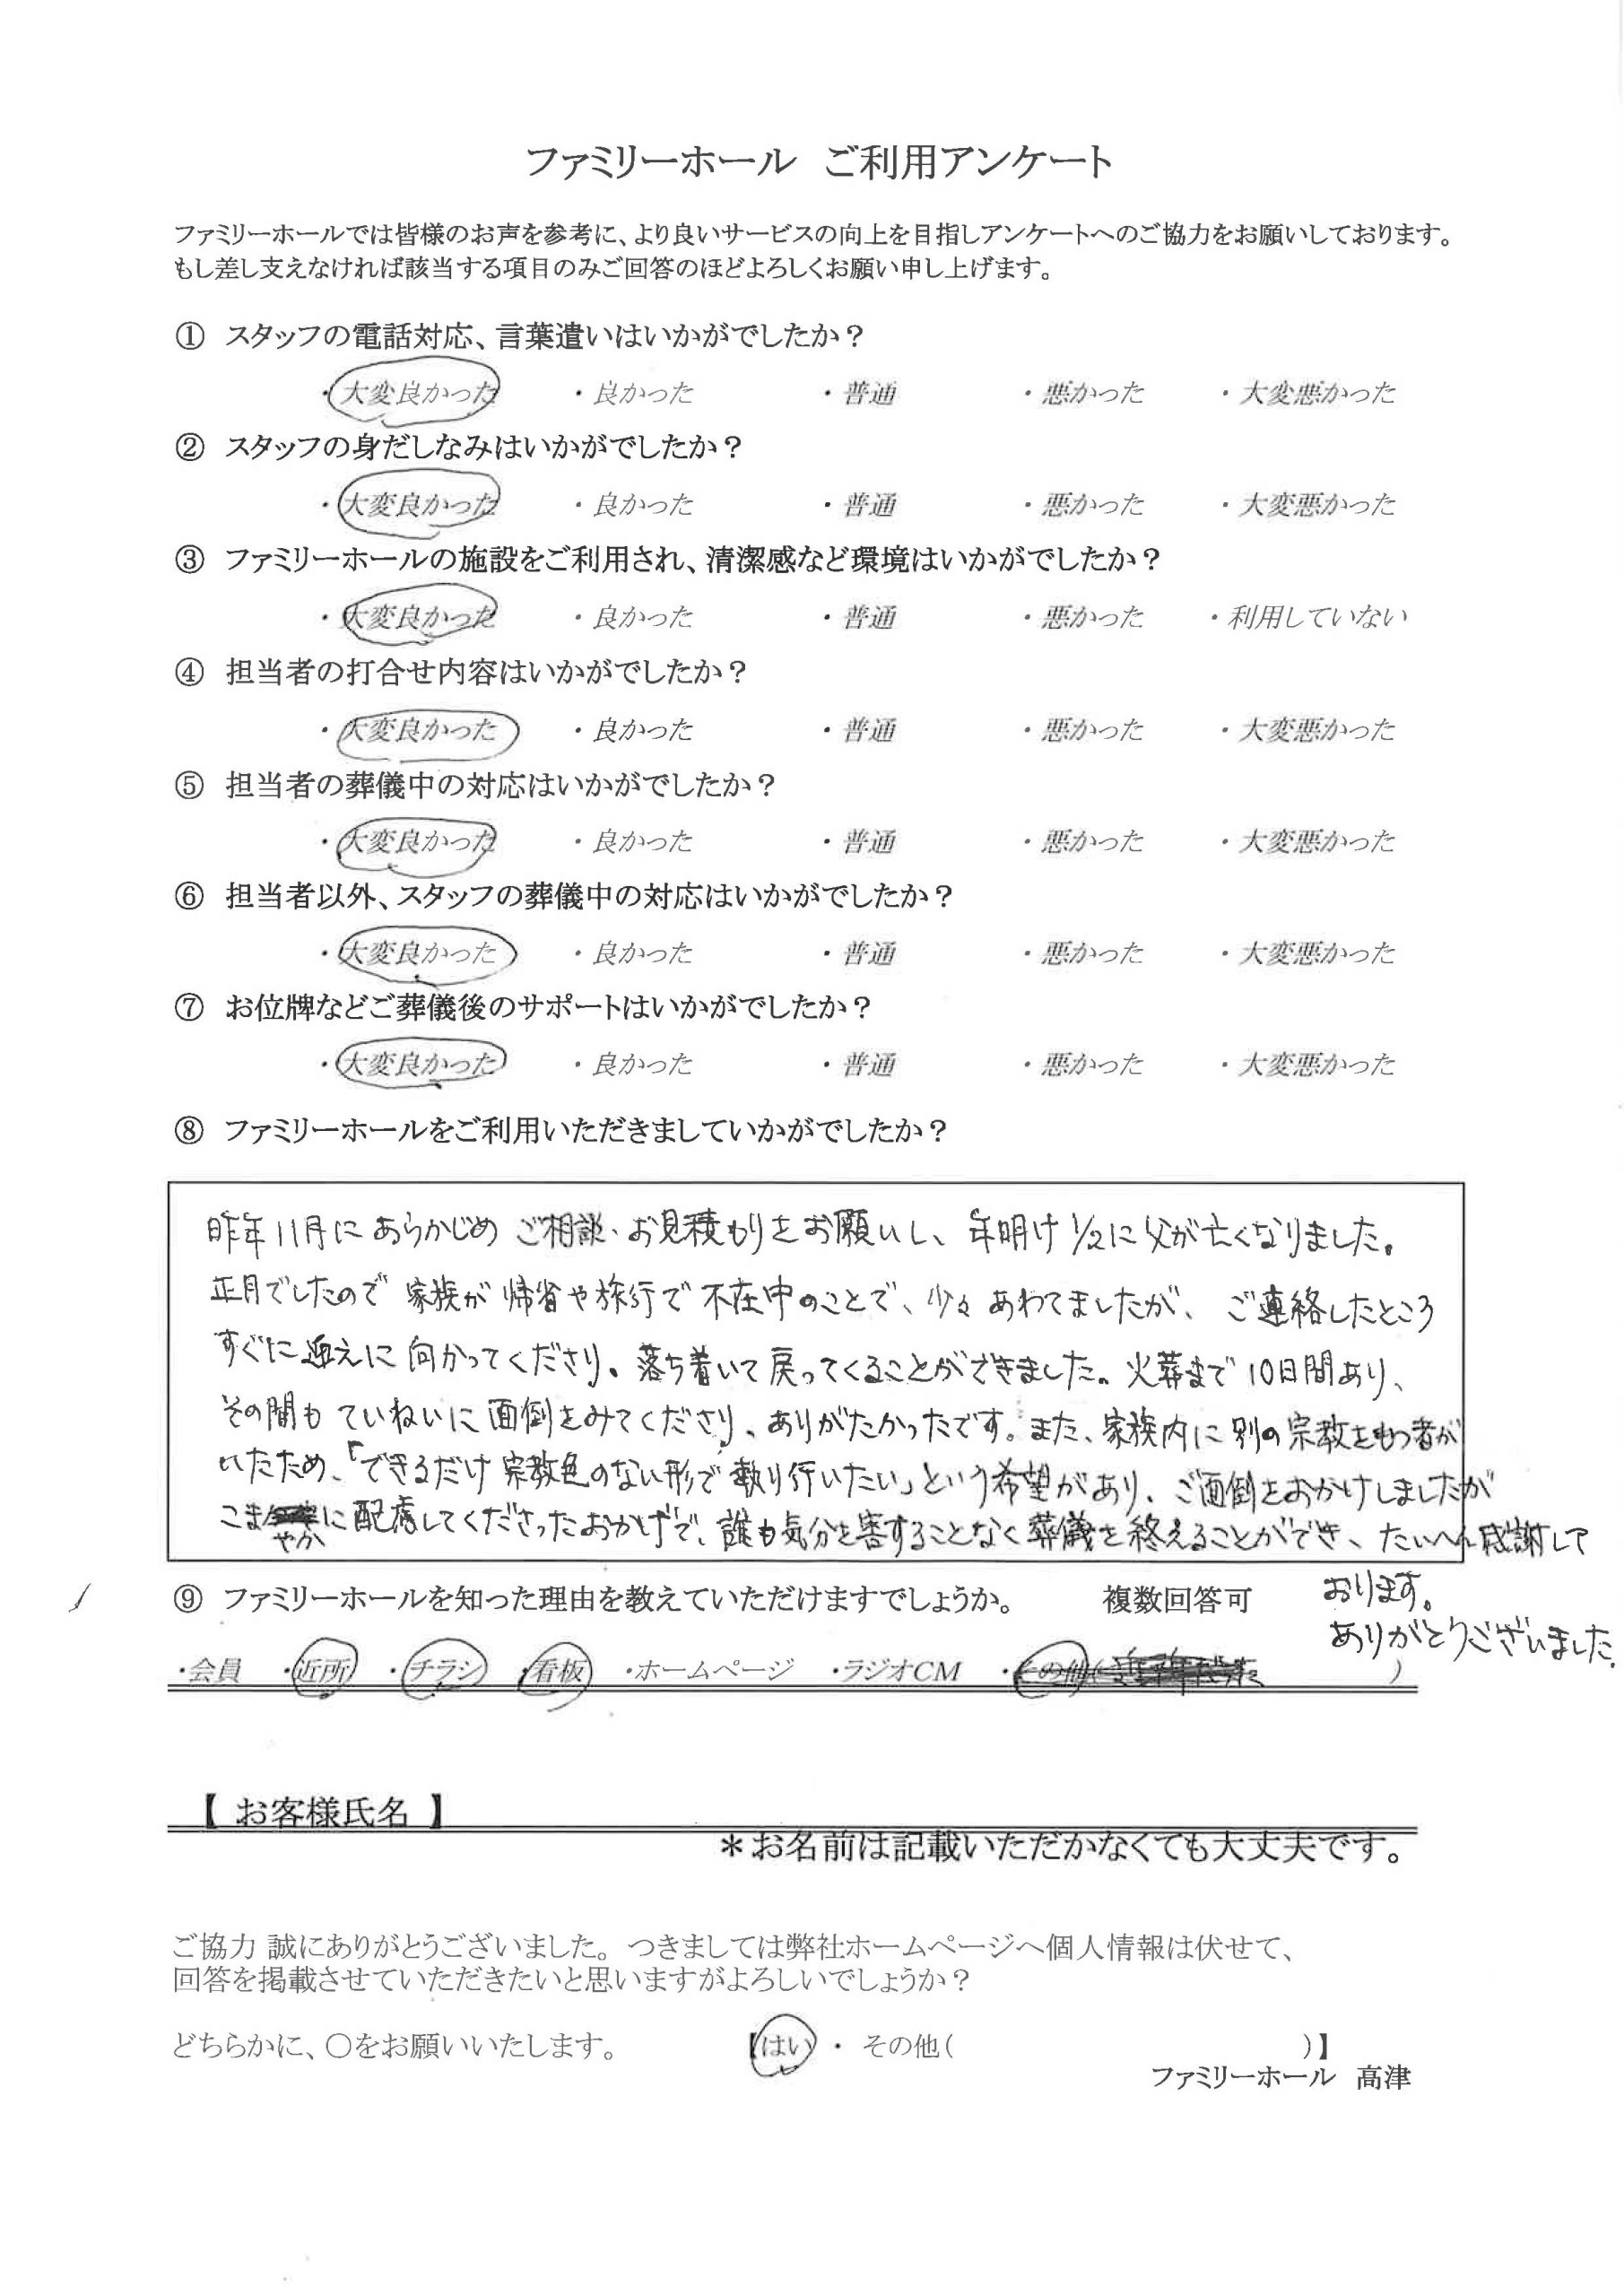 ファミリーホール ご利用アンケート
ファミリーホールでは皆様のお声を参考に、より良いサービスの向上を目指しアンケートへのご協力をお願いしております。
もし差し支えなければ該当する項目のみご回答のほどよろしくお願い申し上げます。
① スタッフの電話対応、言葉遣いはいかがでしたか？
・大変良かった ・良かった ・普通 ・悪かった ・大変悪かった
② スタッフの身だしなみはいかがでしたか？
・大変良かった ・良かった ・普通 ・悪かった ・大変悪かった
③ ファミリーホールの施設をご利用され、清潔感など環境はいかがでしたか？
・大変良かった ・良かった ・普通 ・悪かった ・利用していない
④ 担当者の打合せ内容はいかがでしたか？
・大変良かった ・良かった ・普通 ・悪かった ・大変悪かった
⑤ 担当者の葬儀中の対応はいかがでしたか？
・大変良かった ・良かった ・普通 ・悪かった ・大変悪かった
⑥ 担当者以外、スタッフの葬儀中の対応はいかがでしたか？
・大変良かった ・良かった ・普通 ・悪かった ・大変悪かった
⑦ お位牌などご葬儀後のサポートはいかがでしたか？
・大変良かった ・良かった ・普通 ・悪かった ・大変悪かった
⑧ ファミリーホールをご利用いただきましていかがでしたか？
昨年11月にあらかじめ ご相談、お見積もりをお願いし、年明け1/2に父が亡くなりました。
正月でしたので 家族が帰省や旅行で不在中のことで、少々あわてましたが、ご連絡したところ
すぐに迎えに向かってくださり。落ち着いて戻ってくることができました。火葬まで10日間あり、
その間もていねいに面倒をみてくださり、ありがたかったです。また、家族内に別の宗教をもつ者が
いたため、「できるだけ宗教色のない形で執り行いたい」という希望があり、ご面倒をおかけしましたが
こまやかに配慮してくださったおかげで、誰も気分を害することなく葬儀を終えることができ、たいへん感謝して
おります。
ありがとうございました。
⑨ ファミリーホールを知った理由を教えていただけますでしょうか。 複数回答可
・会員 ・近所 ・チラシ ・看板 ・ホームページ ・ラジオCM ・その他( )
【 お客様氏名 】
＊お名前は記載いただかなくても大丈夫です。
ご協力 誠にありがとうございました。つきましては弊社ホームページへ個人情報は伏せて、
回答を掲載させていただきたいと思いますがよろしいでしょうか？
どちらかに、〇をお願いいたします。 【はい ・ その他( )】
ファミリーホール 高津